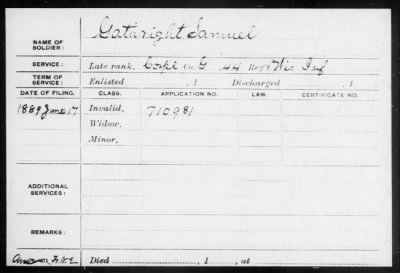 NAME OF SOLDIER: Gathright, Samuel
SERVICE: Late rank, Corpl Co. G, 44 Reg't Wis Inf
TERM OF SERVICE: Enlisted , 1 Discharged , 1
DATE OF FILING. CLASS. APPLICATION NO. CERTIFICATE NO.
1889 June 17 Invalid, 710981
Widow,
Minor,
ADDITIONAL SERVICES:
REMARKS:
Died , 1 , at